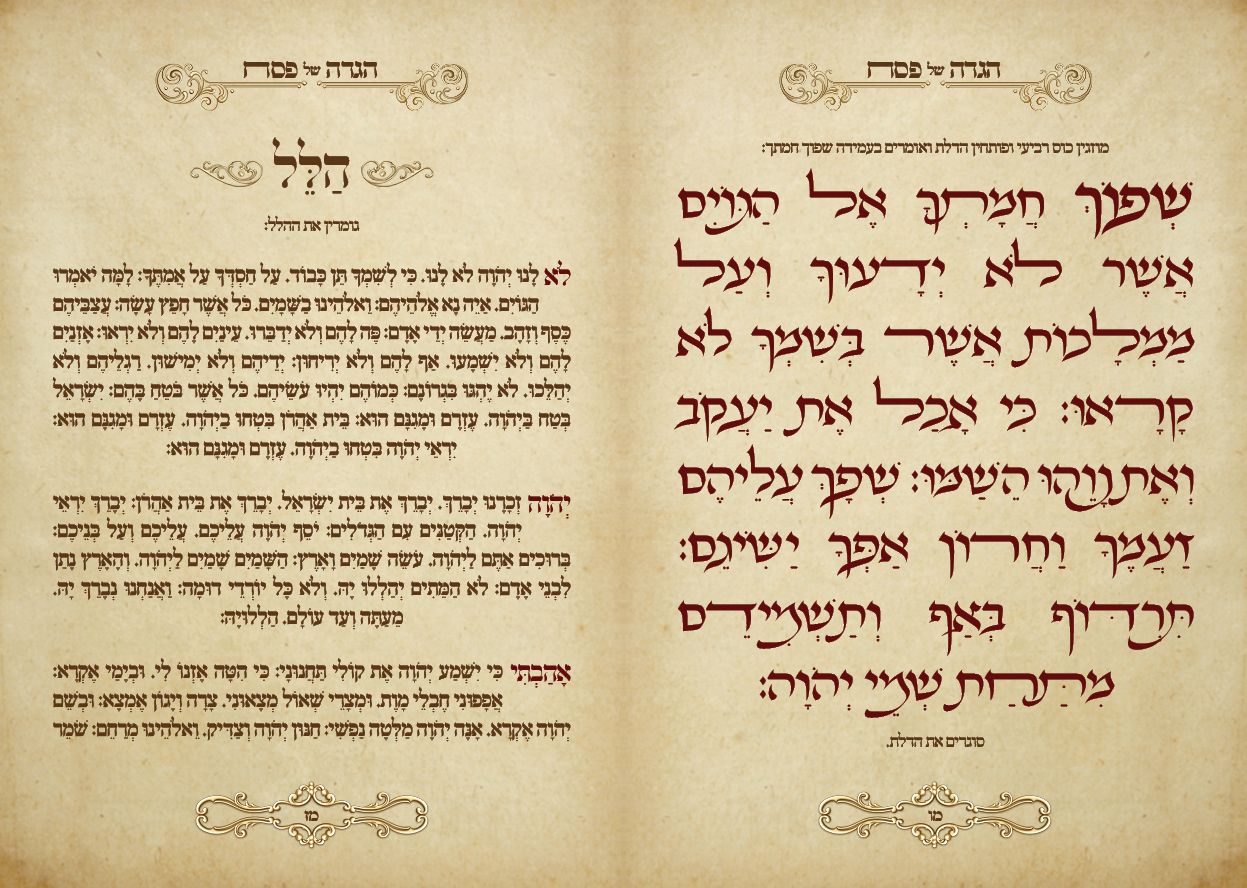 הגדה של פסח
מוזגין כוס רביעי ופותחין הדלת ואומרים בעמידה שפוך חמתך:
שְׁפוֹךְ חֲמָתְךָ אֶל הַגּוֹיִם
אֲשֶׁר לֹא יְדָעוּךָ וְעַל
מַמְלָכוֹת אֲשֶׁר בְּשִׁמְךָ לֹא
קָרָאוּ: כִּי אָכַל אֶת יַעֲקֹב
וְאֶת נָוֵהוּ הֵשַׁמּוּ: שְׁפָךְ עֲלֵיהֶם
זַעֲמֶךָ וַחֲרוֹן אַפְּךָ יַשִּׂיגֵם:
תִּרְדּוֹף בְּאַף וְתַשְׁמִידֵם
מִתַּחַת שְׁמֵי יְהֹוָה:
סוגרים את הדלת.
מו
הגדה של פסח
הַלֵּל
גומרין את ההלל:
לֹא לָנוּ יְהֹוָה לֹא לָנוּ. כִּי לְשִׁמְךָ תֵּן כָּבוֹד. עַל חַסְדְּךָ עַל אֲמִתֶּךָ: לָמָּה יֹאמְרוּ
הַגּוֹיִם. אַיֵּה נָא אֱלֹהֵיהֶם: וֵאלֹהֵינוּ בַשָּׁמָיִם. כֹּל אֲשֶׁר חָפֵץ עָשָׂה: עֲצַבֵּיהֶם
כֶּסֶף וְזָהָב. מַעֲשֵׂה יְדֵי אָדָם: פֶּה לָהֶם וְלֹא יְדַבֵּרוּ. עֵינַיִם לָהֶם וְלֹא יִרְאוּ: אָזְנַיִם
לָהֶם וְלֹא יִשְׁמָעוּ. אַף לָהֶם וְלֹא יְרִיחוּן: יְדֵיהֶם וְלֹא יְמִישׁוּן. רַגְלֵיהֶם וְלֹא
יְהַלֵּכוּ. לֹא יֶהְגּוּ בִּגְרוֹנָם: כְּמוֹהֶם יִהְיוּ עֹשֵׂיהֶם. כֹּל אֲשֶׁר בֹּטֵחַ בָּהֶם: יִשְׂרָאֵל
בְּטַח בַּיְהֹוָה. עֶזְרָם וּמָגִנָּם הוּא: בֵּית אַהֲרֹן בִּטְחוּ בַיְהֹוָה. עֶזְרָם וּמָגִנָּם הוּא:
יִרְאֵי יְהֹוָה בִּטְחוּ בַיְהֹוָה. עֶזְרָם וּמָגִנָּם הוּא:
יְהֹוָה זְכָרָנוּ יְבָרֵךְ. יְבָרֵךְ אֶת בֵּית יִשְׂרָאֵל. יְבָרֵךְ אֶת בֵּית אַהֲרֹן: יְבָרֵךְ יִרְאֵי
יְהֹוָה. הַקְּטַנִּים עִם הַגְּדֹלִים: יֹסֵף יְהֹוָה עֲלֵיכֶם. עֲלֵיכֶם וְעַל בְּנֵיכֶם:
בְּרוּכִים אַתֶּם לַיְהֹוָה. עֹשֵׂה שָׁמַיִם וָאָרֶץ: הַשָּׁמַיִם שָׁמַיִם לַיְהֹוָה. וְהָאָרֶץ נָתַן
לִבְנֵי אָדָם: לֹא הַמֵּתִים יְהַלְלוּ יָהּ. וְלֹא כָּל יוֹרְדֵי דוּמָה: וַאֲנַחְנוּ נְבָרֵךְ יָהּ.
מֵעַתָּה וְעַד עוֹלָם. הַלְלוּיָהּ:
אָהַבְתִּי כִּי יִשְׁמַע יְהֹוָה אֶת קוֹלִי תַּחֲנוּנָי: כִּי הִטָּה אָזְנוֹ לִי. וּבְיָמַי אֶקְרָא:
אֲפָפוּנִי חֶבְלֵי מָוֶת. וּמְצָרֵי שְׁאוֹל מְצָאוּנִי. צָרָה וְיָגוֹן אֶמְצָא: וּבְשֵׁם
יְהֹוָה אֶקְרָא. אָנָּה יְהֹוָה מַלְּטָה נַפְשִׁי: חַנּוּן יְהֹוָה וְצַדִּיק. וֵאלֹהֵינוּ מְרַחֵם: שֹׁמֵר
מז